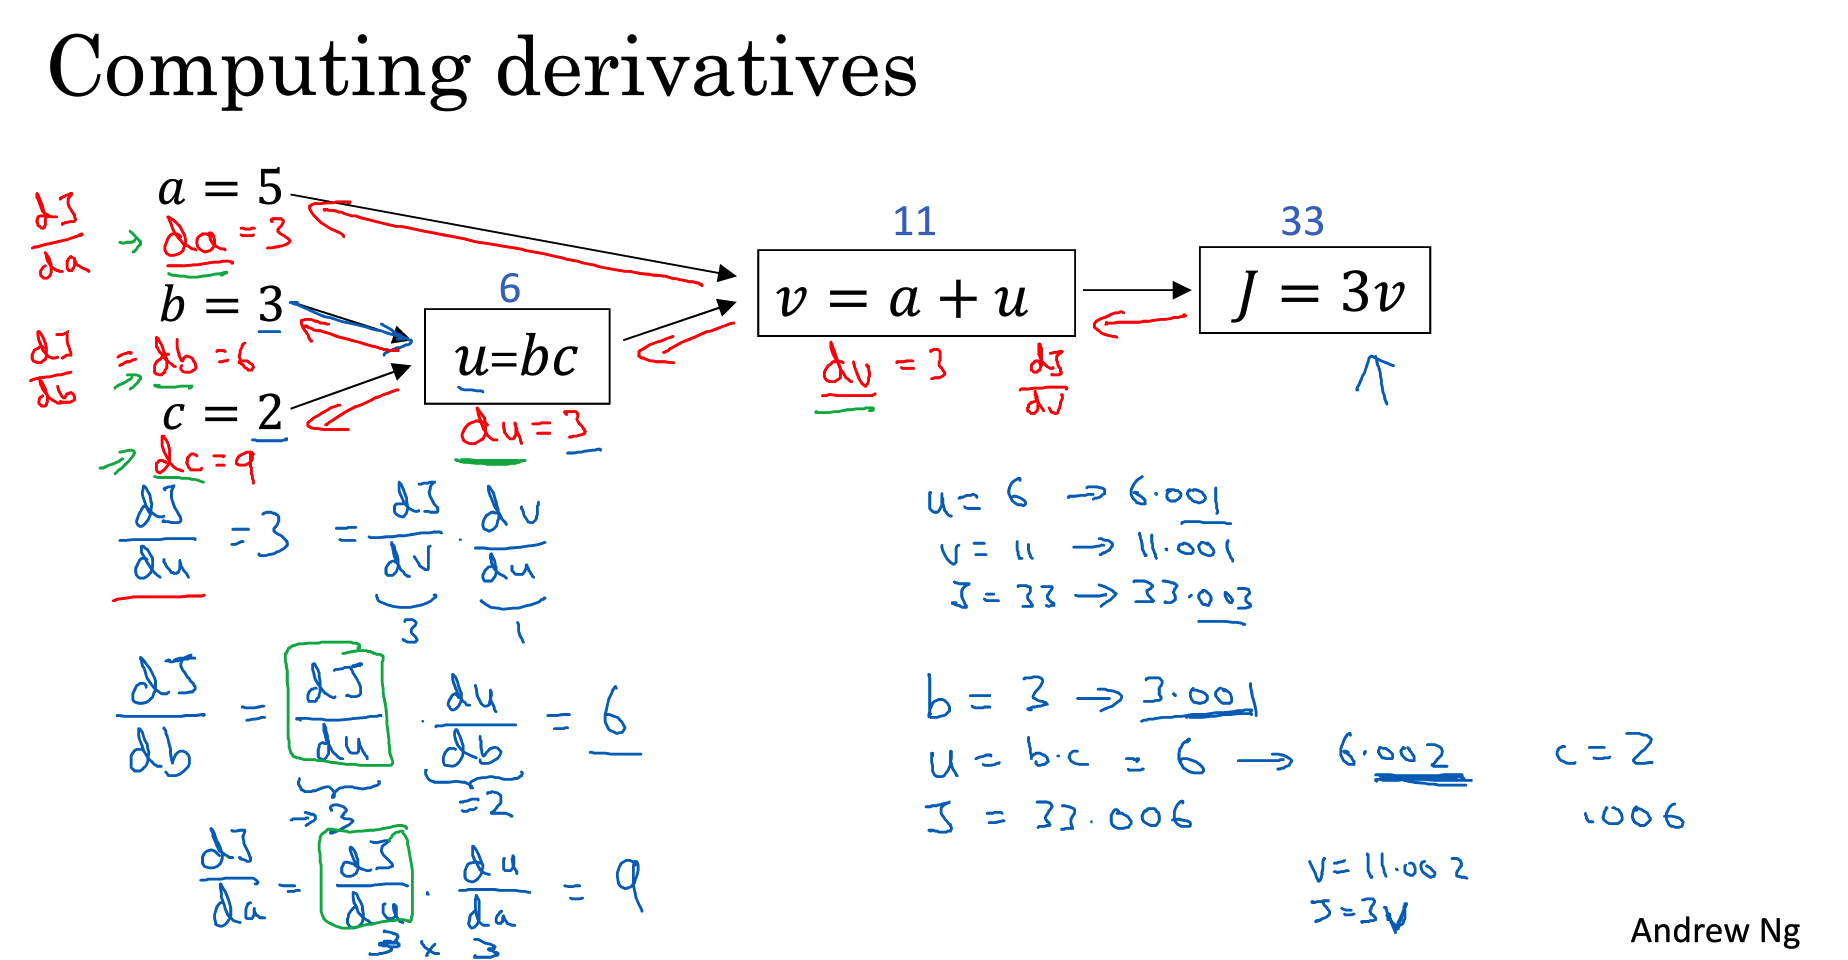 Computing derivatives
a = 5
dJ/da → da = 3
b = 3
dJ/db = db = 6
→
c = 2
→ dc = 9
6
u=bc
du = 3
11
v = a + u
dv = 3 dJ/dv
33
J = 3v
dJ/du = 3 = dJ/dv · dv/du
3 1
dJ/db = dJ/du · du/db = 6
→ 3 = 2
dJ/da = dJ/du · du/da = 9
3 × 3
u = 6 → 6.001
v = 11 → 11.001
J = 33 → 33.003
b = 3 → 3.001
u = b·c = 6 → 6.002 c = 2
J = 33.006 .006
v = 11.002
J = 3v
Andrew Ng